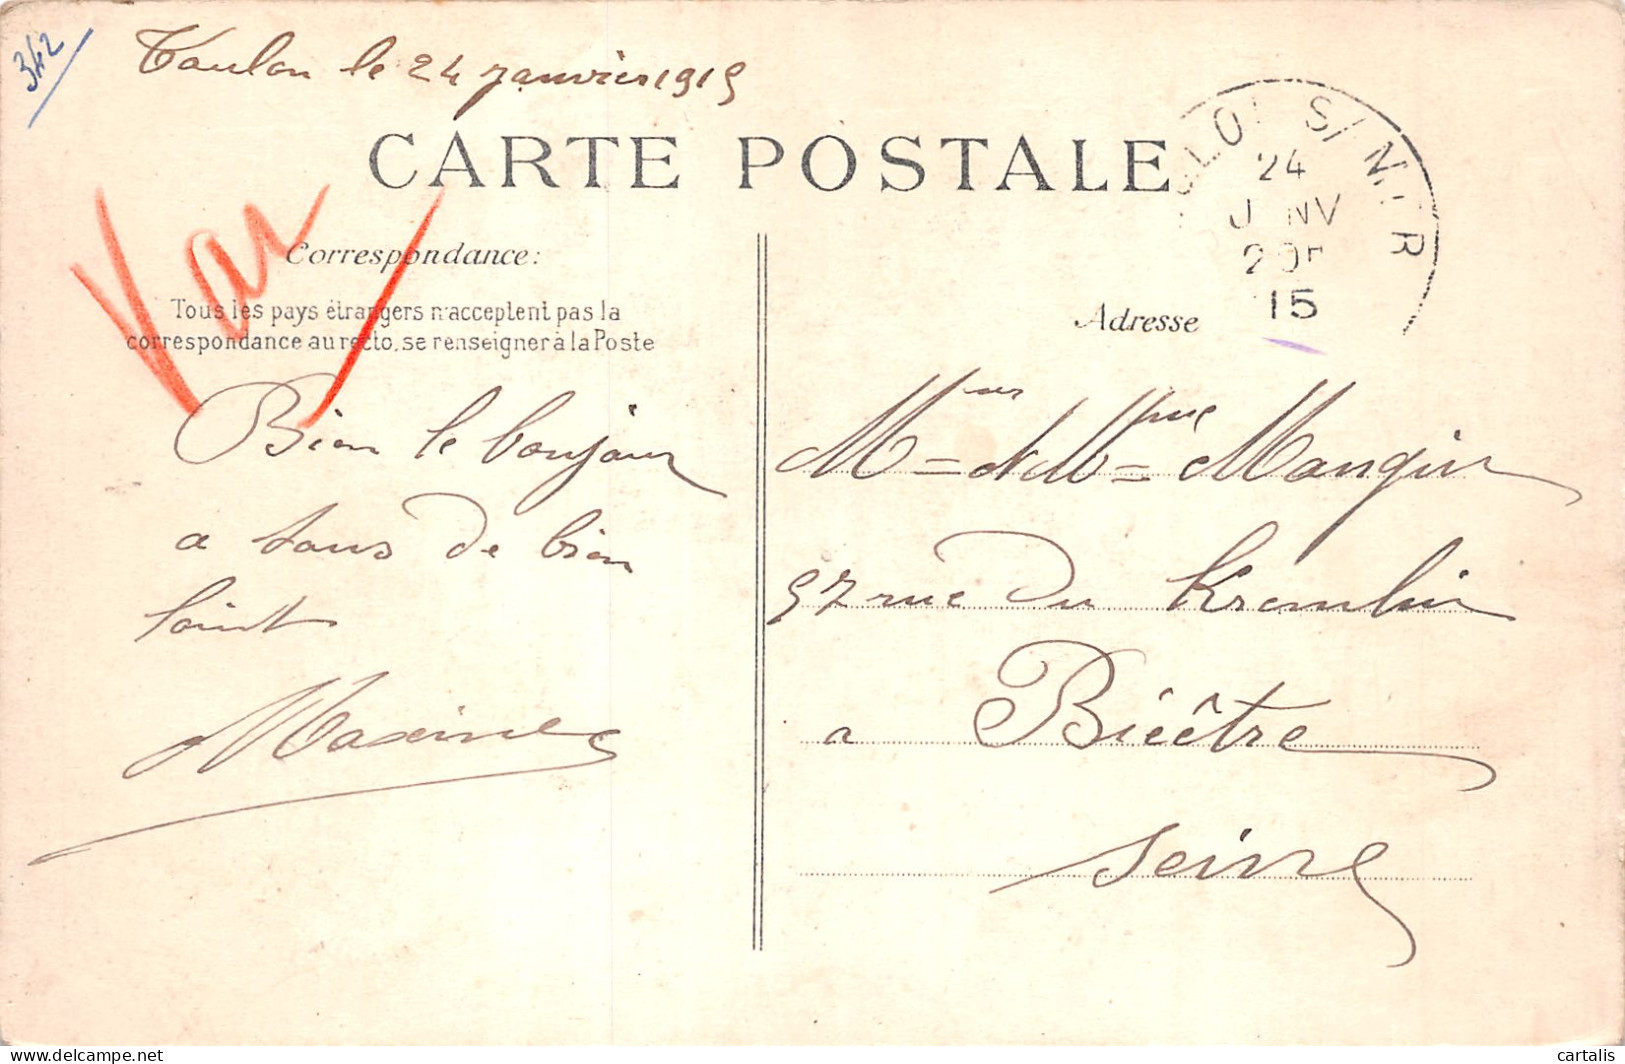 342
Toulon le 24 janvier 1915
CARTE POSTALE
S/MER
24
J NV
15
Var
Correspondance:
Tous les pays étrangers n'acceptent pas la
correspondance au recto, se renseigner à la Poste
Adresse
Bien le bonjour
a tous de bien
loint
Maxime
M et Mme Mangin
97 rue Du Kremlin
a Bicêtre
Seine
delcampe.net
cartalis